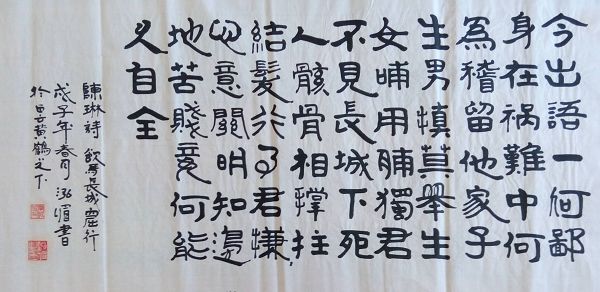 今出語一何鄙
身在祸難中何
為稽留他家子
生男慎莫舉生
女哺用脯獨君
不見長城下死
人骸骨相撑拄
結髮行事君慊
心意關明知邊
地苦賤妾何能
久自全
陳琳詩 飲馬長城窟行
戊子年春月 書
於 黄鶴之下